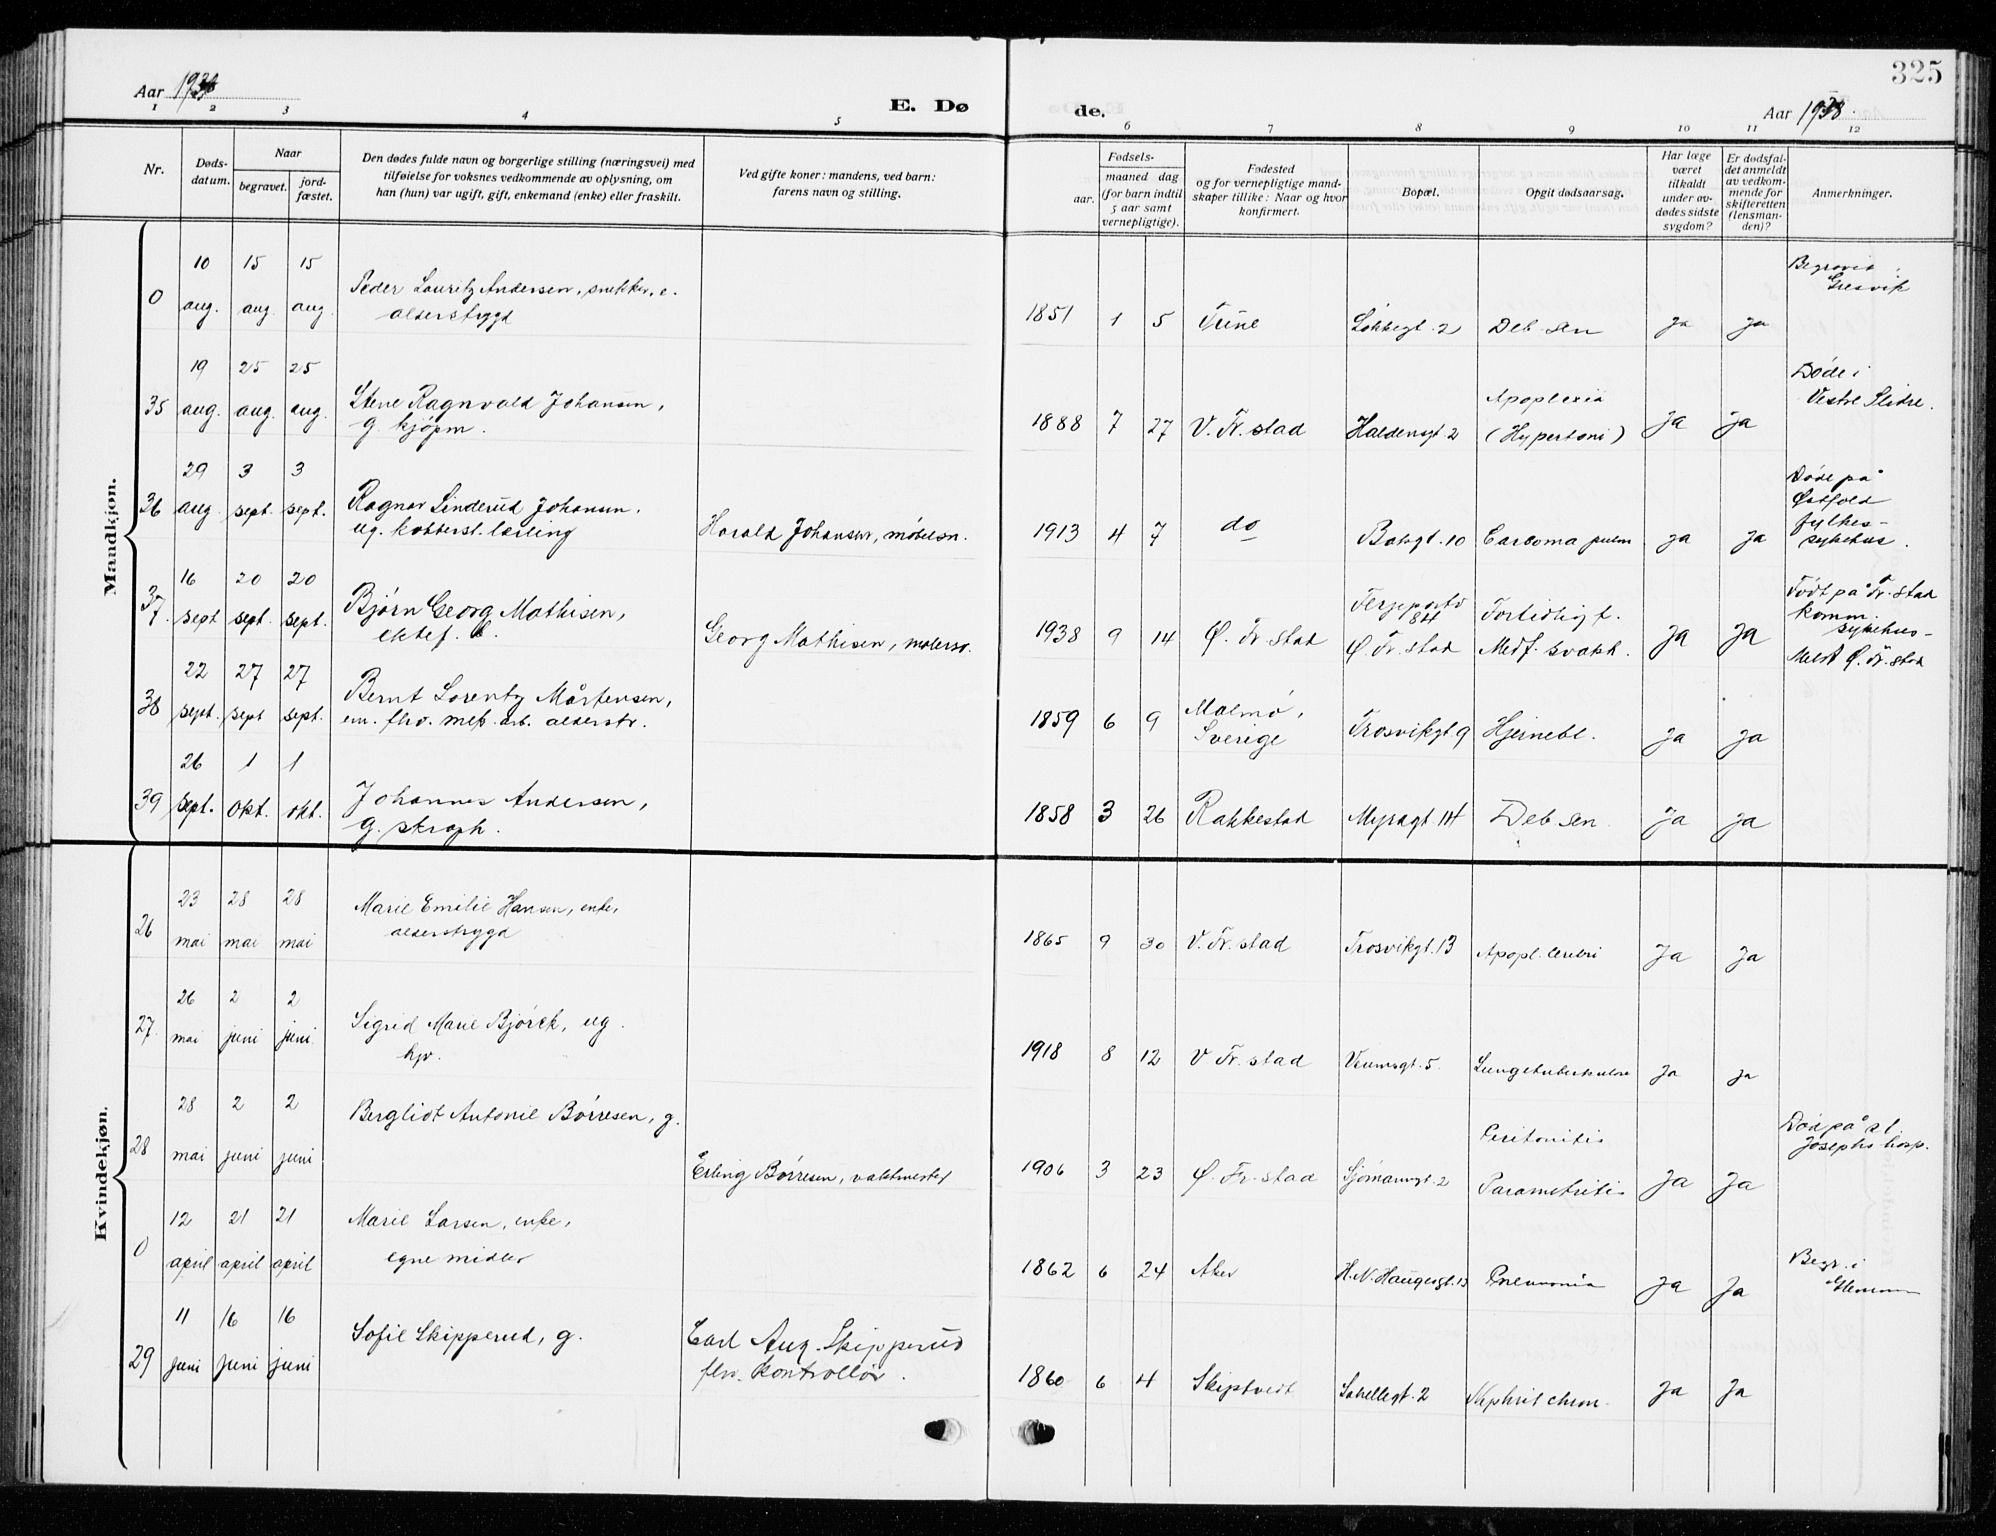 325
Aar 1938
E. Dø
de.
Aar 1938.
1 2 3 4 5 6 7 8 9 10 11 12
Nr.
Døds-
datum.
Naar
begravet.
jord-
fæstet.
Den dødes fulde navn og borgerlige stilling (næringsvei) med
tilføielse for voksnes vedkommende av oplysning, om
han (hun) var ugift, gift, enkemand (enke) eller fraskilt.
Ved gifte koner: mandens, ved barn:
farens navn og stilling.
Fødsels-
aar.
maaned dag
(for barn indtil
5 aar samt
vernepligtige).
Fødested
og for vernepligtige mand-
skaper tillike: Naar og hvor
konfirmert.
Bopæl.
Opgit dødsaarsag.
Har læge
været
tilkaldt
under av-
dødes sidste
sygdom?
Er dødsfal-
det anmeldt
av vedkom-
mende for
skifteretten
(lensman-
den)?
Anmerkninger.
Mandkjøn.
0 10 aug. 15 aug. 15 aug.
Peder Lauritz Andersen, snekker, e.
alderstrygd
1851 1 5 Tune Løkkegt. 2 Deb. sen ja ja
Begravet i
Gresvik
35 19 aug. 25 aug. 25 aug.
Stene Ragnvald Johansen,
g. kjøpm.
1888 7 27 V. Fr. stad Haldensgt. 2 Apoplexia
(Hypertoni) ja ja
Døde i
Vestre Slidre.
36 29 aug. 3 sept. 3 sept.
Ragnar Linderud Johansen,
ug. kobberst. lærling
Harald Johansen, møbelsn.
1913 4 7 do Bakgt. 10 Carcoma pulm ja ja
Døde på
Østfold
fylkes-
sykehus.
37. 16 sept 20 sept. 20 sept.
Bjørn Georg Mathisen,
ektef. b.
Georg Mathisen, malersv.
1938 9 14 Ø. Fr. stad Ferjeportv
84
Ø. Fr. stad Fortidligf.
Medf. svakh. ja ja
Født på Fr. stad
komm.
sykehus-
Meldt Ø. Fr. stad
38 22 sept. 27 sept 27 sept.
Bernt Lorentz Mårtensen,
em. fhv. mek. arb. alderstr.
1859 6 9 Malmø,
Sverige Trosvikgt. 9 Hjernebl. ja ja
39 26 sept. 1 okt. 1 okt.
Johannes Andersen,
g. skraph.
1858 3 26 Rakkestad Myragt 14 Deb sen ja ja
Kvindekjøn.
26 23 mai 28 mai 28 mai
Marie Emilie Hansen, enke,
alderstrygd
1865 9 30 V. Fr. stad Trosvikgt. 13 Apopl. cerebri Ja Ja
27. 26 mai 2 juni 2 juni
Sigrid Marie Bjørck, ug.
hjv.
1918 8 12 V Fr. stad Veumsgt. 5. Lungetuberkulose Ja ja
28 28 mai 2 juni 2 juni
Bergliot Antonie Børresen, g.
Erling Børresen, vaktmester
1906 3 23 Ø. Fr. stad Sjømannsgt. 2 Peritonitis
Parametritis Ja Ja
Død på st.
Josephs hosp.
0 12 april 21 april 21 april
Marie Larsen, enke,
egne midler
1862 6 24 Aker H. N. Haugesgt. 13 Pneumonia Ja Ja
Begr. i
Glemmen
29 11 juni 16 juni 16 juni
Sofie Skipperud, g.
Carl Aug. Skipperud
fhv. kontrollør.
1860 6 4 Skiptvedt Schellegt. 2 Nephrit chron. Ja Ja